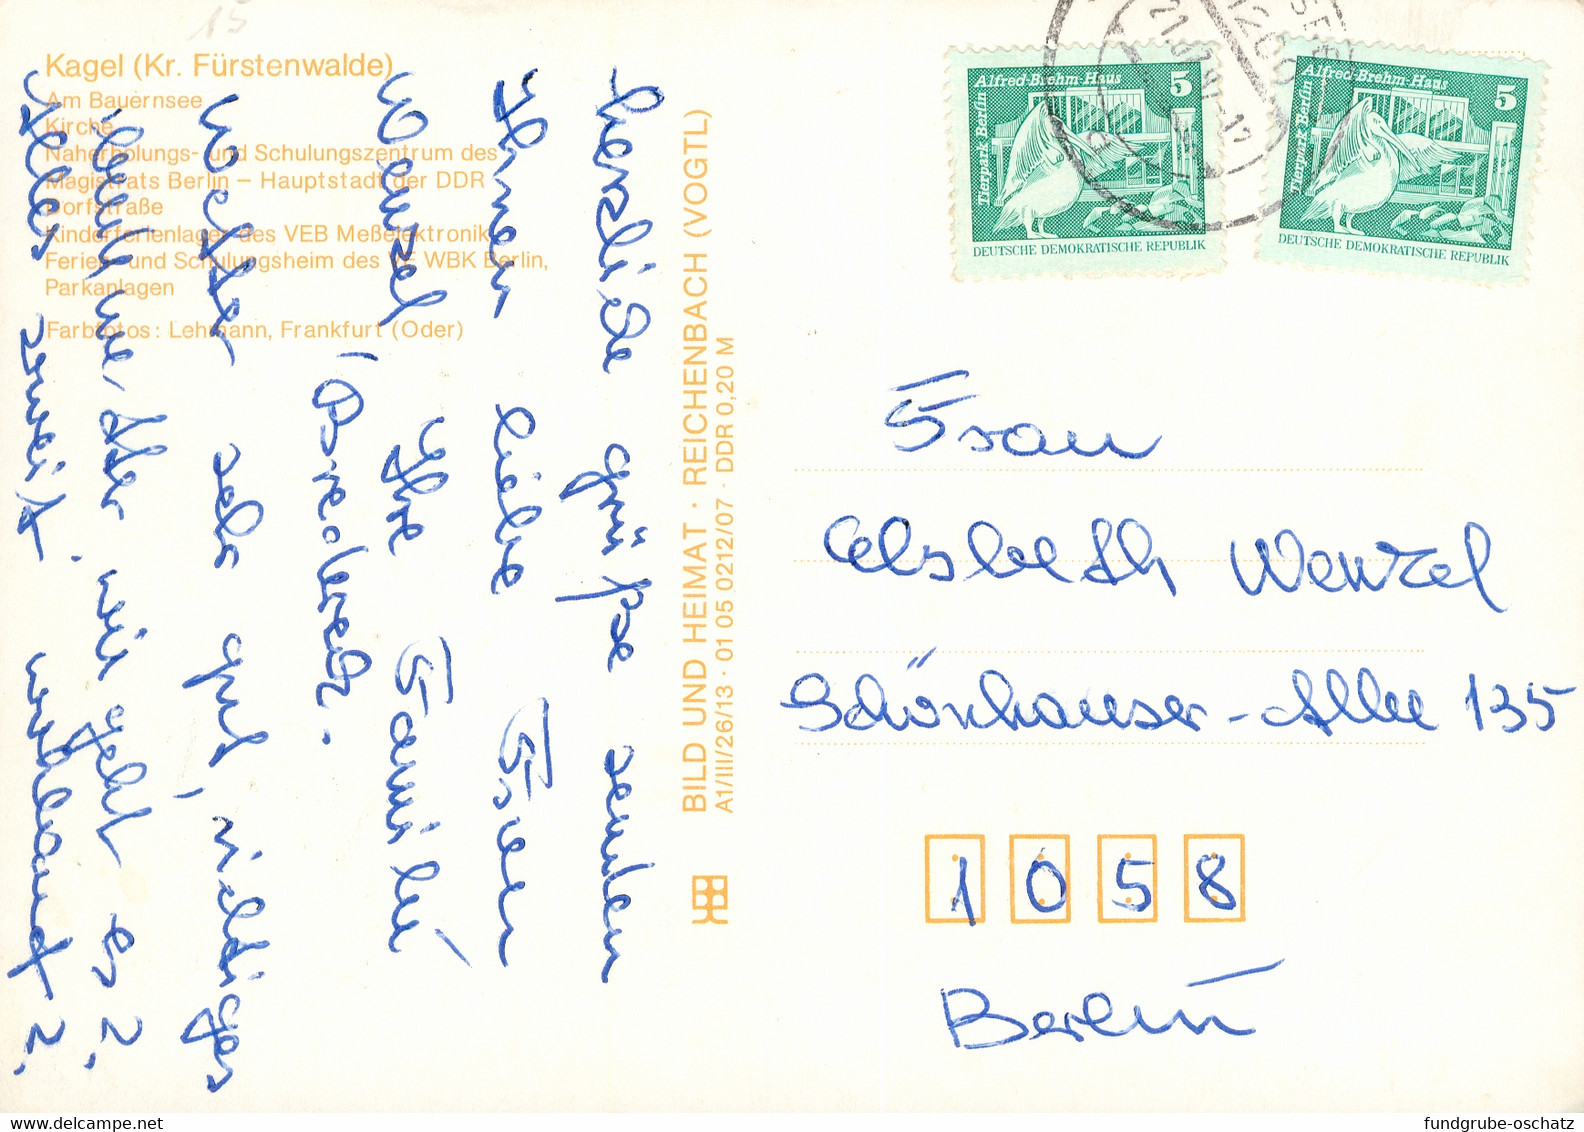 15
Kagel (Kr. Fürstenwalde)
Am Bauernsee
Kirche
Naherholungs- und Schulungszentrum des
Magistrats Berlin – Hauptstadt der DDR
Dorfstraße
Kinderferienlager des VEB Meßelektronik
Ferien- und Schulungsheim des VE WBK Berlin,
Parkanlagen
Farbfotos: Lehmann, Frankfurt (Oder)
Herzliche Grüße senden
Ihnen liebe Frau
Wenzel, Ihre Familie
Wetter sehr gut, richtiges
mir geht es z.
Alles zweit
BILD UND HEIMAT · REICHENBACH (VOGTL)
A1/III/26/13 · 01 05 0212/07 · DDR 0,20 M
Tierpark Berlin · Alfred-Brehm-Haus
5
DEUTSCHE DEMOKRATISCHE REPUBLIK
Tierpark Berlin · Alfred-Brehm-Haus
5
DEUTSCHE DEMOKRATISCHE REPUBLIK
Frau
Elsbeth Wenzel
Schönhauser-Allee 135
1058
Berlin
fundgrube-oschatz